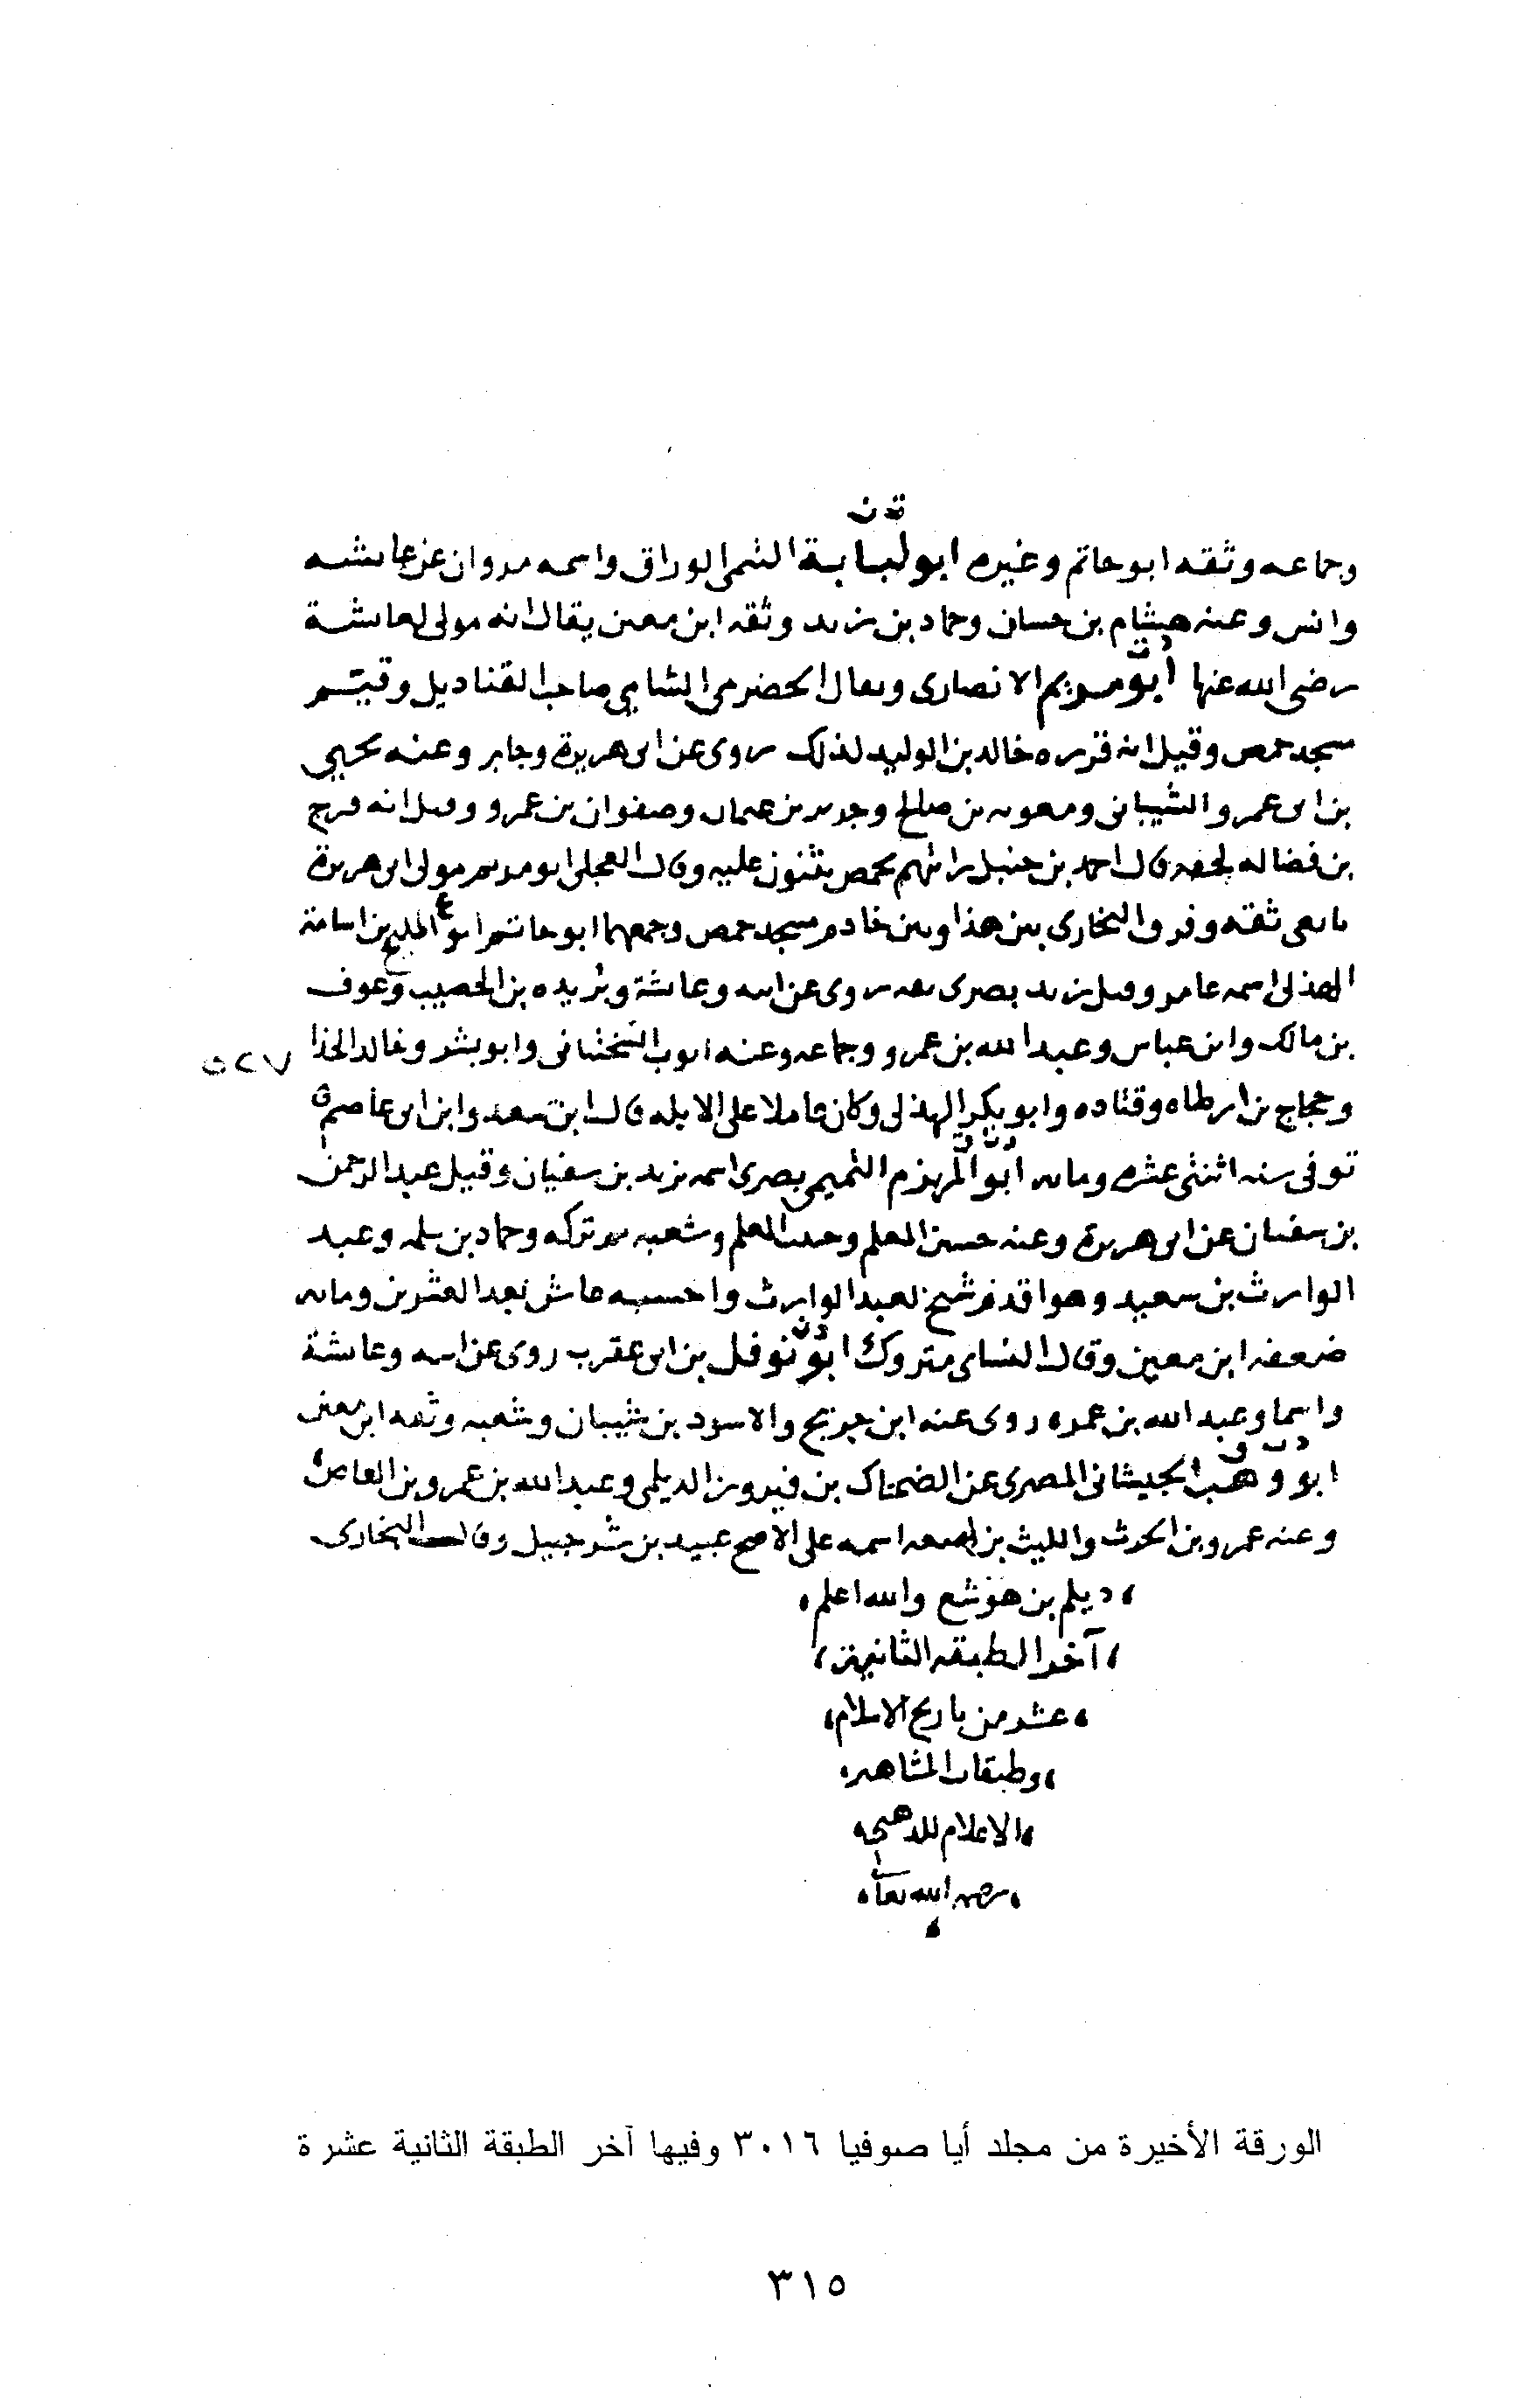 ت ن
وجماعه وثقه ابو حاتم وغيره ابو لبابة الوراق واسمه مروان عن عائشه
وانس وعنه هشام بن حسان وحماد بن زيد وثقه ابن معين يقال انه مولى لعائشة
د ت
رضي الله عنها ابو مريم الانصاري ويقال الحضرمي الشامي صاحب القناديل وقيم
مسجد حمص وقيل انه قرره خالد بن الوليد لذلك روى عن ابي هريرة وجابر وعنه يحيى
بن ابي عمرو الشيباني ومعويه بن صالح وجرير بن عثمان وصفوان بن عمرو وقيل انه فرج
بن فضاله لحقه قال احمد بن حنبل رايتهم بحمص يثنون عليه وقال العجلي ابو مريم مولى ابي هريرة
تابعي ثقه وفرق البخاري بين هذا وبين خادم مسجد حمص وجمعهما ابو حاتم ابو المليح بن اسامة
ع
الهذلي اسمه عامر وقيل زيد بصري ثقه روى عن ابيه وعائشة وبريده بن الحصيب وعوف
بن مالك وابن عباس وعبد الله بن عمرو وجماعه وعنه ايوب السختياني وابو بشر وخالد الحذا
٥٢٧
وحجاج بن ارطاه وقتاده وابو بكر الهذلي وكان عاملا على الابله قال ابن سعد وابن ابي عاصم
د ت ق
توفي سنه اثنتي عشره ومايه ابو المهزم التميمي بصري اسمه يزيد بن سفيان وقيل عبد الرحمن
بن سفيان عن ابي هريرة وعنه حسين المعلم وحبيب المعلم وشعبه ثم تركه وحماد بن سلمه وعبد
الوارث بن سعيد وهو اقدم شيخ لعبد الوارث واحسبه عاش بعد العشرين ومايه
د ن
ضعفه ابن معين وقال النساي متروك ابو نوفل بن ابي عقرب روى عن ابيه وعائشة
واسما وعبد الله بن عمر روى عنه ابن جريج والاسود بن شيبان وشعبه وثقه ابن معين
د ت ق
ابو وهب الجيشاني المصري عن الضحاك بن فيروز الديلمي وعبد الله بن عمرو بن العاص
وعنه عمرو بن الحرث والليث بن لهيعه اسمه على الاصح عبيد بن شرحبيل وقال البخاري
ديلم بن هوشع والله اعلم
آخر الطبقه الثانية
عشر من تاريخ الاسلام
وطبقات المشاهير
الاعلام للذهبي
رحمه الله تعالى
الورقة الأخيرة من مجلد أيا صوفيا ٣٠١٦ وفيها آخر الطبقة الثانية عشرة
٣١٥